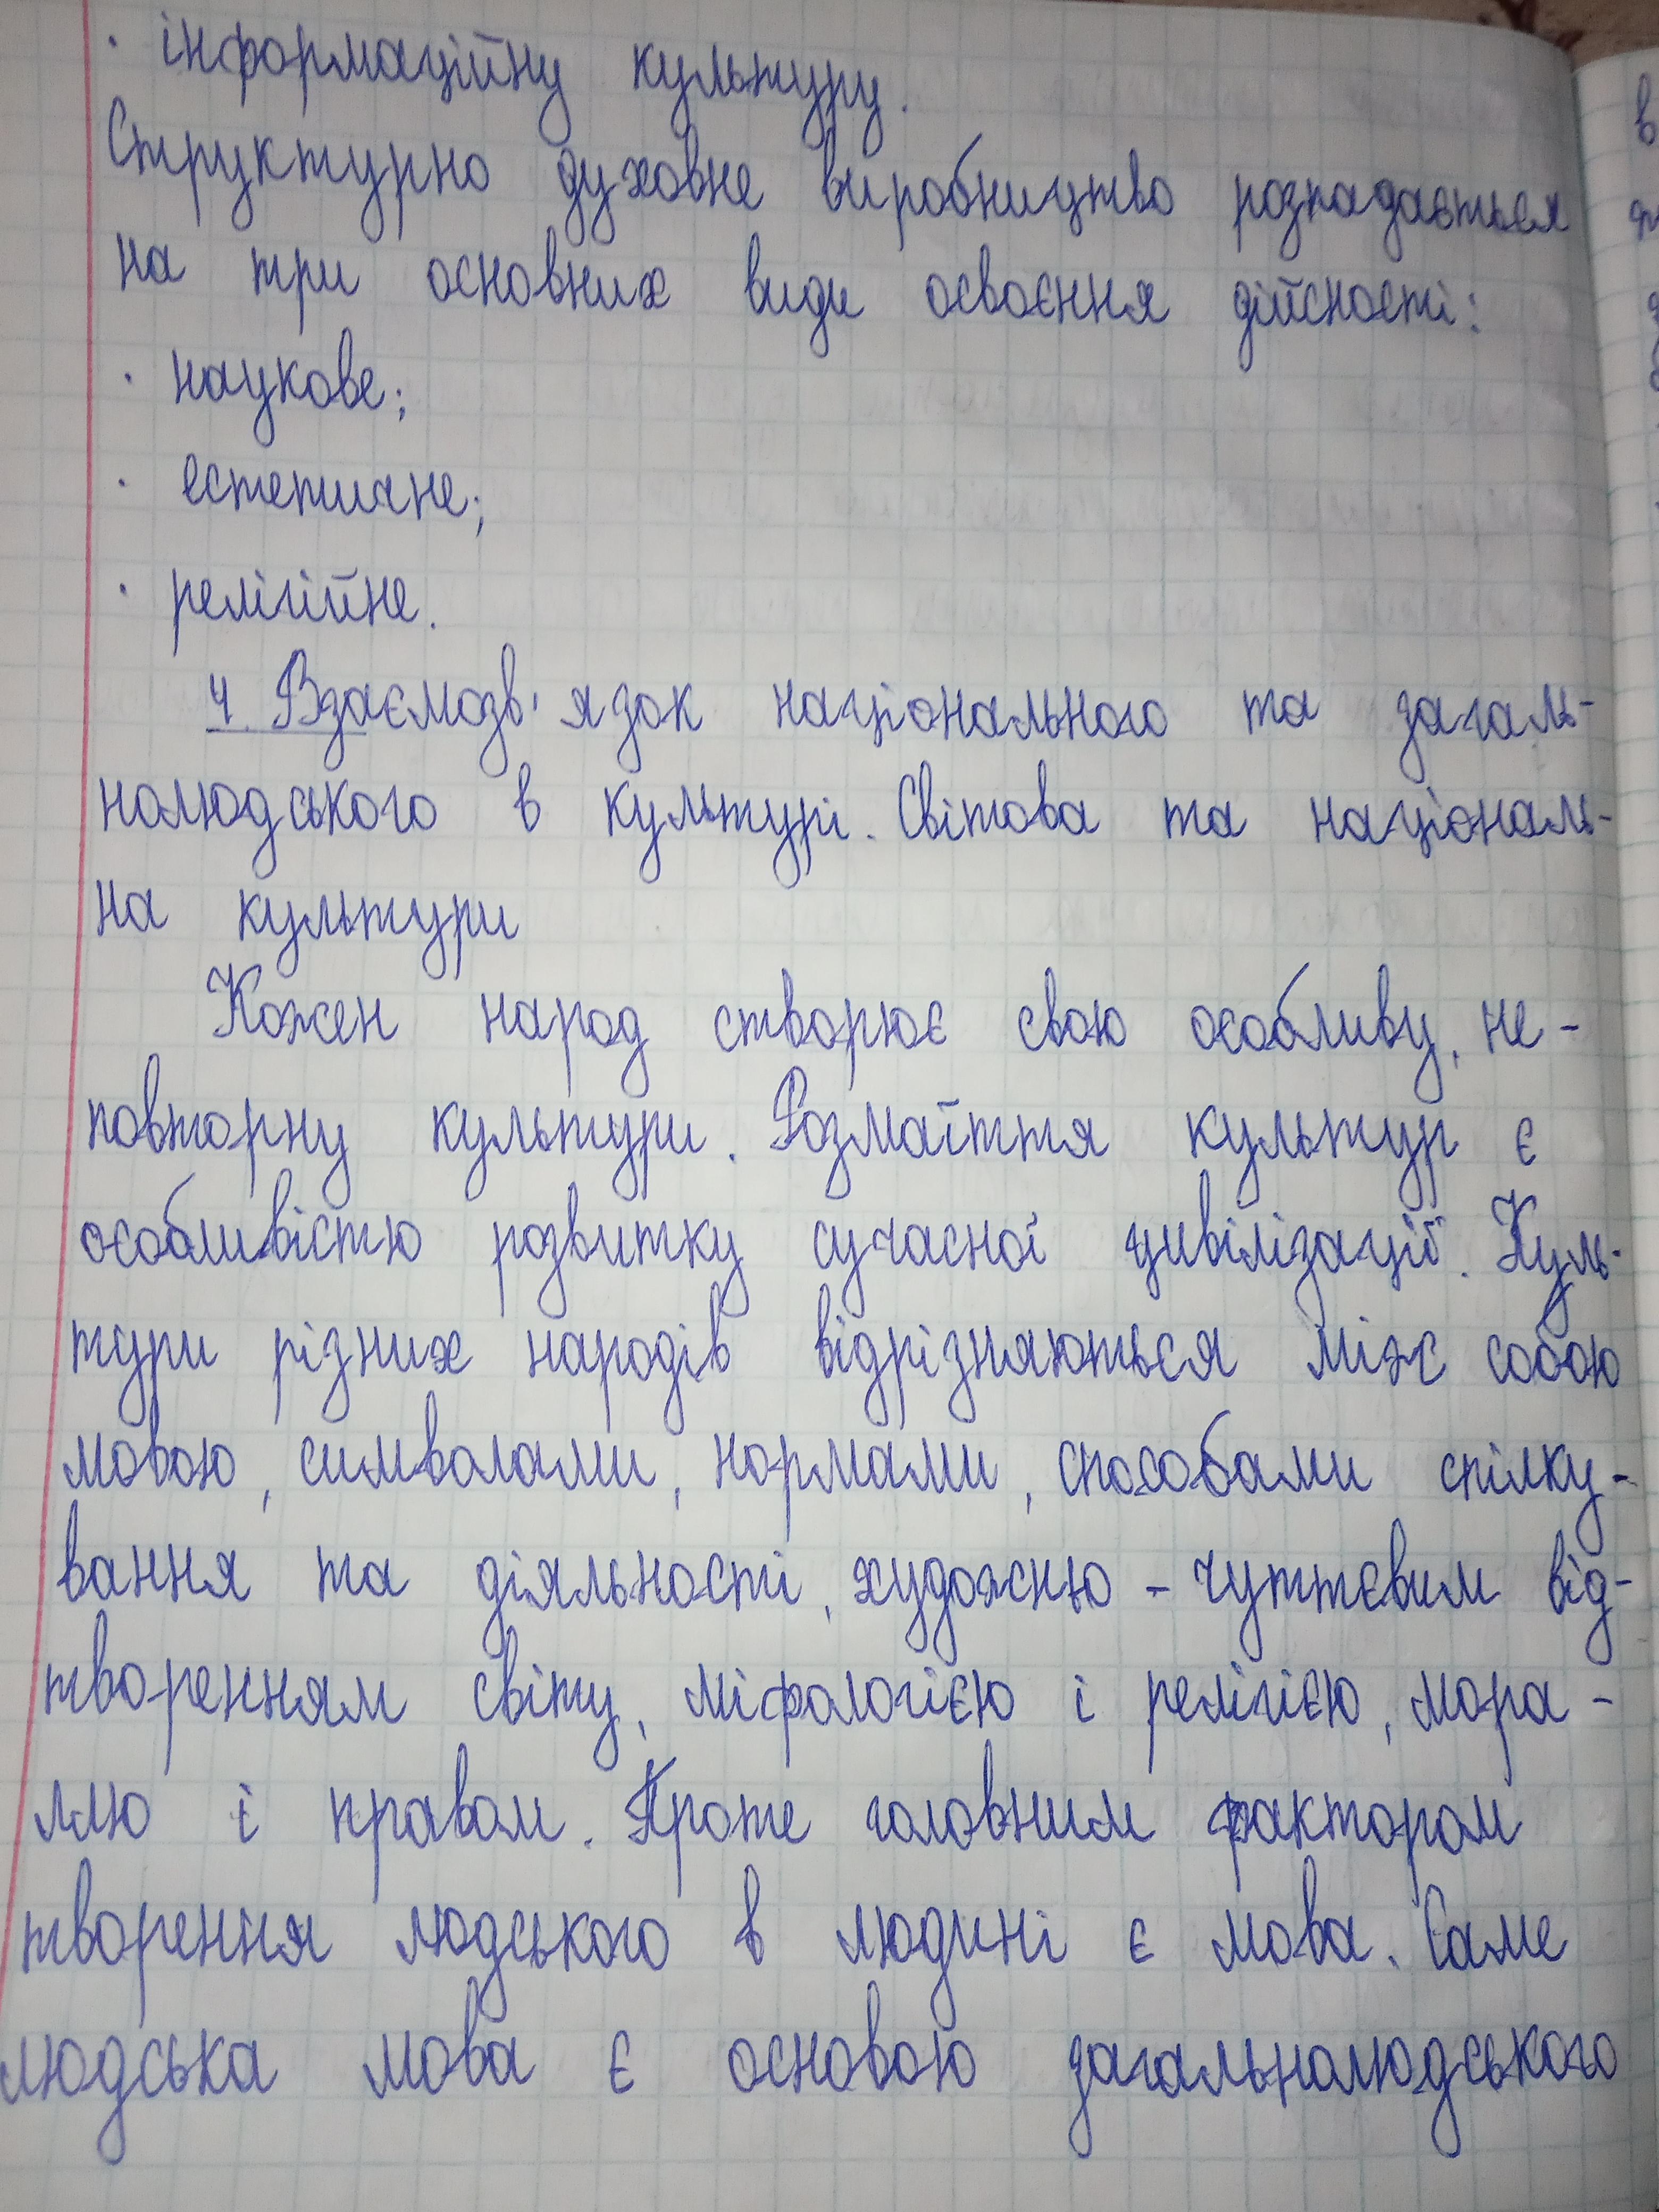 · інформаційну культуру.
Структурно духовне виробництво розпадається
на три основних види освоєння дійсності:
· наукове;
· естетичне;
· релігійне.
4. Взаємозв'язок національного та загаль-
нолюдського в культурі. Світова та національ-
на культури
Кожен народ створює свою особливу, не-
повторну культури. Розмаїття культур є
особливістю розвитку сучасної цивілізації. Куль-
тури різних народів відрізняються між собою
мовою, символами, нормами, способами спілку-
вання та діяльності, художньо - чуттєвим від-
творенням світу, міфологією і релігією, мора-
ллю і правом. Проте головним фактором
творення людського в людині є мова. Саме
людська мова є основою загальнолюдського